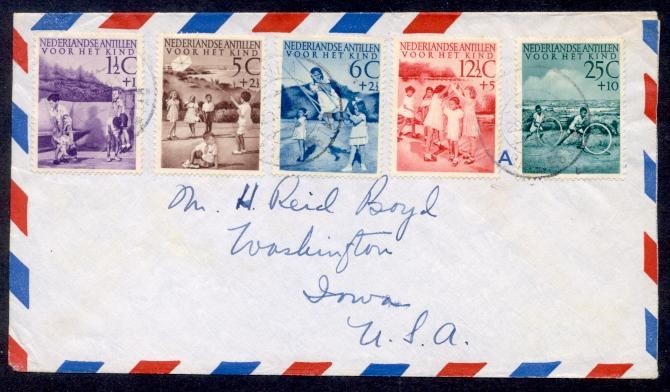 NEDERLANDSE ANTILLEN
VOOR HET KIND
1½C
+1
NEDERLANDSE ANTILLEN
VOOR HET KIND
5C
+2½
NEDERLANDSE ANTILLEN
VOOR HET KIND
6C
+2½
NEDERLANDSE ANTILLEN
VOOR HET KIND
12½C
+5
NEDERLANDSE ANTILLEN
VOOR HET KIND
25C
+10
A
Mr. H. Reid Boyd
Washington
Iowa
U.S.A.